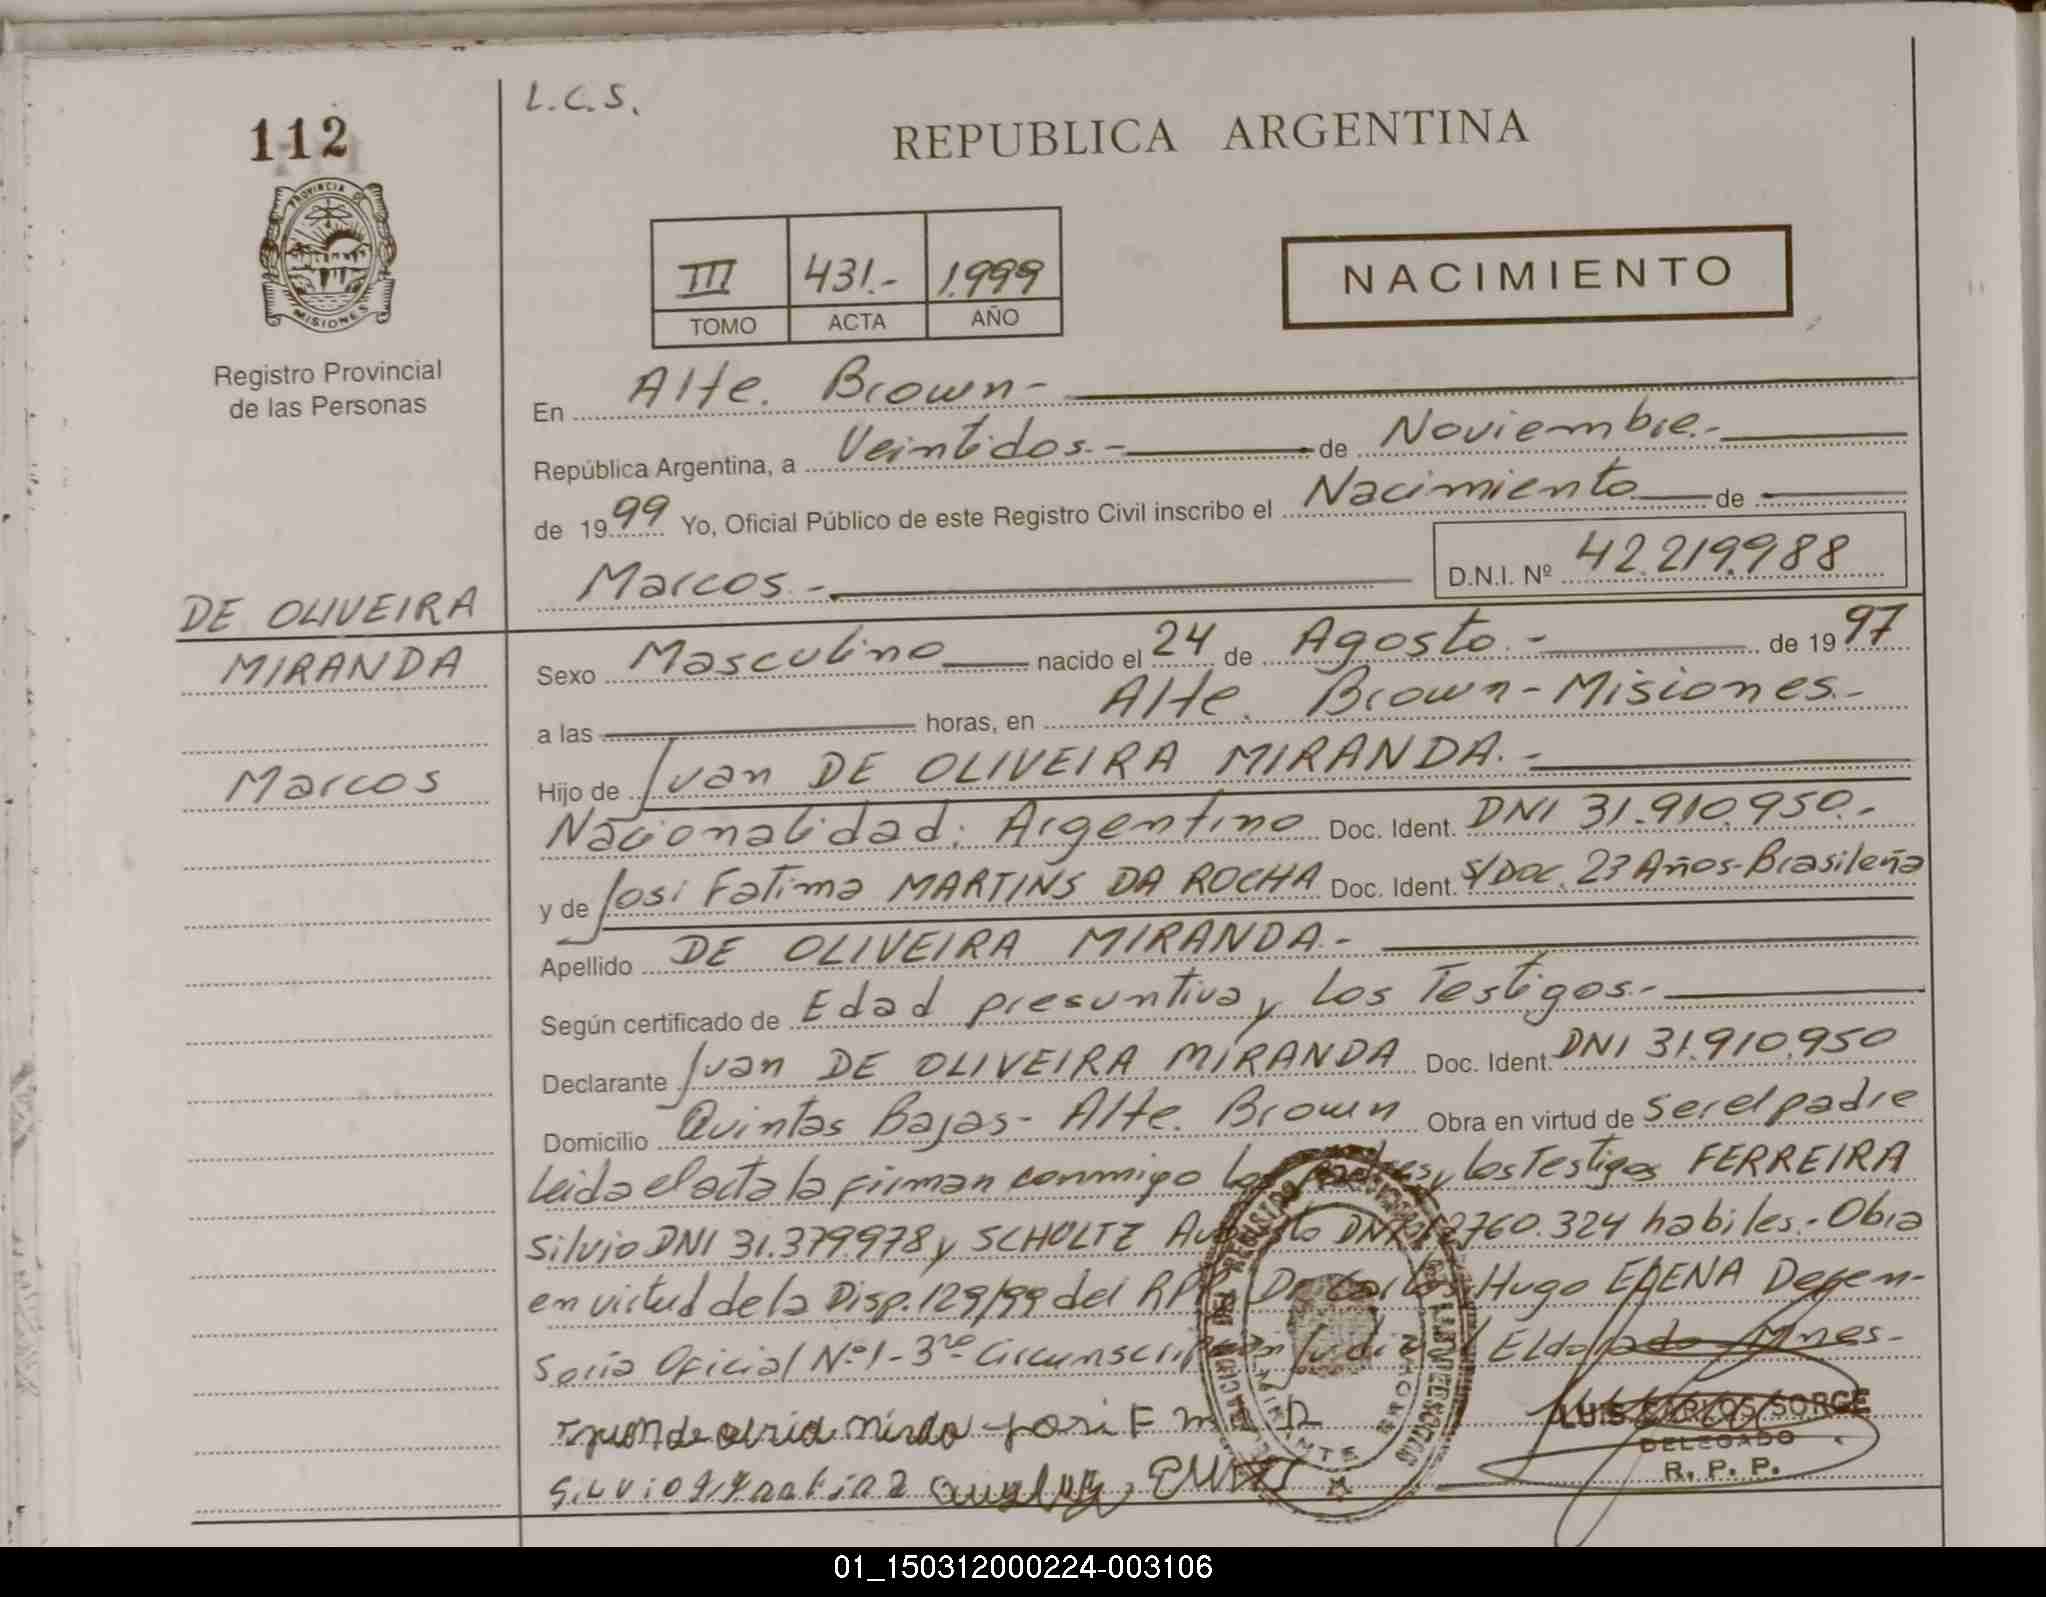 L.C.S.
112
REPUBLICA ARGENTINA
PROVINCIA DE
MISIONES
III 431.- 1.999
TOMO ACTA AÑO
NACIMIENTO
Registro Provincial
de las Personas
En Alte. Brown-
República Argentina, a Veintidos.- de Noviembre.-
de 1999 Yo, Oficial Público de este Registro Civil inscribo el Nacimiento de
Marcos.- D.N.I. Nº 42.219.988
DE OLIVEIRA
MIRANDA
Marcos
Sexo Masculino nacido el 24 de Agosto.- de 1997
a las horas, en Alte. Brown-Misiones.-
Hijo de Juan DE OLIVEIRA MIRANDA.-
Nacionalidad: Argentino Doc. Ident. DNI 31.910.950.-
y de Josi Fatima MARTINS DA ROCHA Doc. Ident. S/Doc. 23 Años-Brasileña
Apellido DE OLIVEIRA MIRANDA.-
Según certificado de Edad presuntiva y los Testigos.-
Declarante Juan DE OLIVEIRA MIRANDA Doc. Ident. DNI 31.910.950
Domicilio Quintas Bajas- Alte. Brown Obra en virtud de ser el padre
Leida el acta la firman conmigo los padres y los Testigos FERREIRA
Silvio DNI 31.379.978 y SCHOLTZ Augusto DNI 12.760.324 habiles.- Obra
en virtud de la Disp. 129/99 del RPP Dr Carlos Hugo Defen-
soria Oficial Nº1-3ra Circunscripción Judicial Eldorado Mnes-
LUIS CARLOS SORGE
DELEGADO
R. P. P.
ALMIRANTE BROWN
01_150312000224-003106